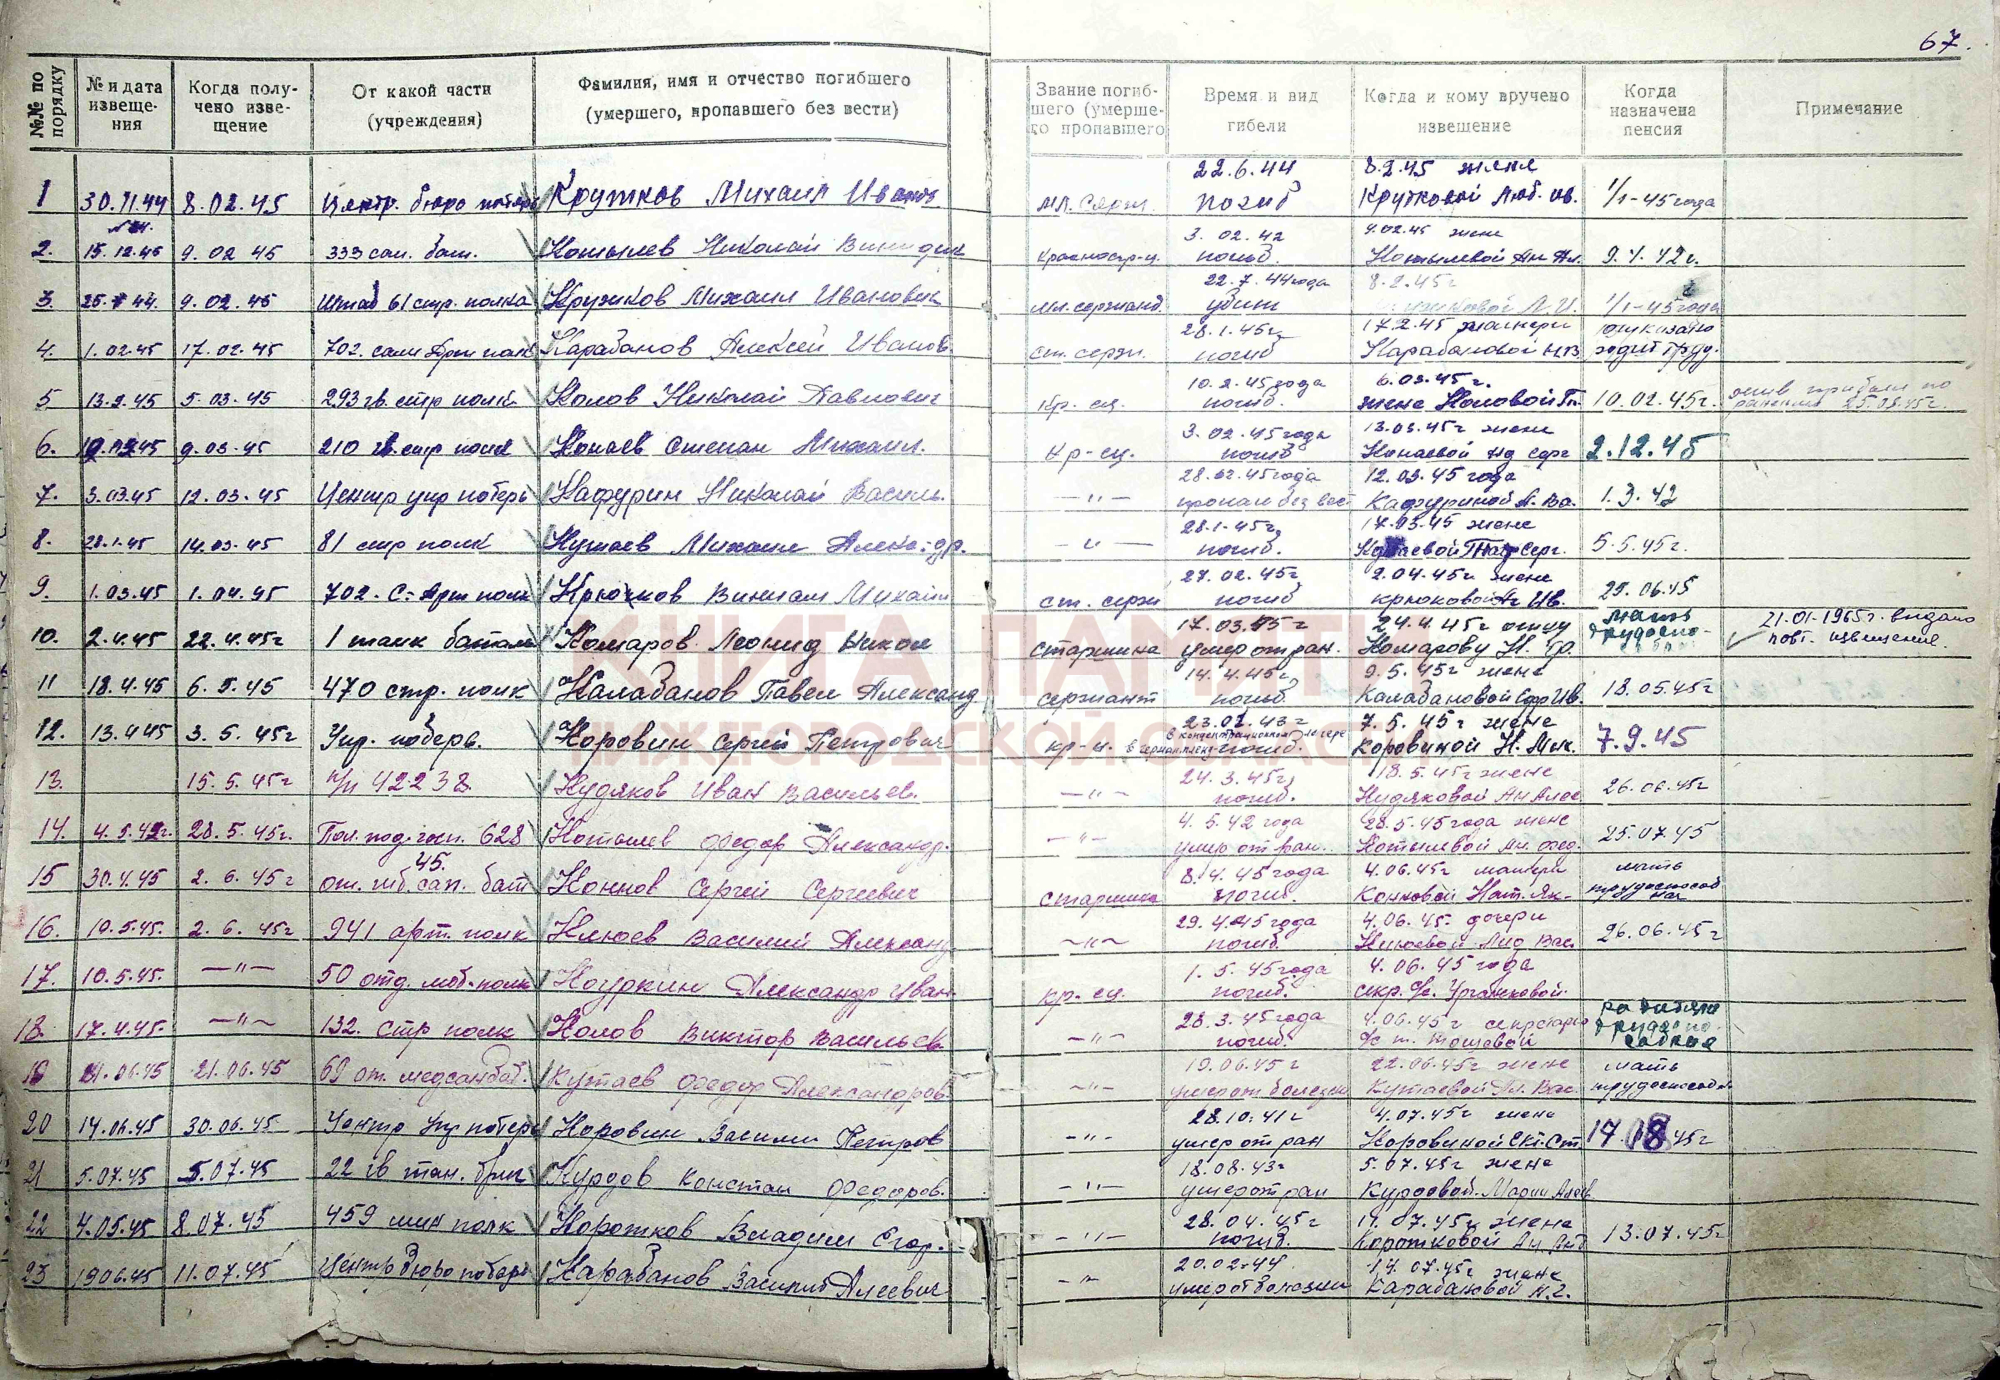 67.
№№ по порядку
№ и дата извеще-ния
Когда полу-чено изве-щение
От какой части (учреждения)
Фамилия, имя и отчество погибшего (умершего, пропавшего без вести)
Звание погиб-шего (умерше-го пропавшего
Время и вид гибели
Когда и кому вручено извещение
Когда назначена пенсия
Примечание
22.6.44 8.2.45 жене
1 30.11.44 8.02.45 Центр. бюро потерь Крутков Михаил Иванов. мл. серж. погиб Крутковой Люб. ив. 1/1-45 года
3.02.42 9.02.45 жене
2. 15.12.45 9.02 45 333 сап. бат. Котылев Николай красноар-ц. погиб. Котылевой Ан Ал. 9.1.42г.
22.7.44 года 8.2.45г
3. 25.7.44. 9.02.45 Штаб 61 стр. полка Кружков Михаил Иванович мл. сержант. убит Л.И. 1/1-45 года
28.1.45г 17.2.45 матери
4. 1.02.45 17.02.45 702. сам Арт полк Карабанов Алексей Иванов. ст. серж. погиб Карабановой
10.2.45 года 6.03.45 г.
5 13.2.45 5.03.45 293 гв. стр полк Колов Николай Павлович Кр. ец. погиб. жене Коловой 10.02.45г.
3.02.45 года 13.03.45г жене
6. 9.03.45 210 гв. стр полк Конаев Степан Михаил. Кр-ец. погиб Конаевой 2.12.45
28.02.45 года 12.03.45 года
7. 3.03.45 12.03.45 Центр упр потерь Кафурин Николай Василь. —"— пропал без вест Кафуриной А. Ва. 1.3.42
28.1.45г 17.03.45 жене
8. 28.1.45 14.03.45 81 стр полк Кутаев Михаил —"— погиб. серг. 5.5.45г.
27.02.45г 2.04.45г жене
9. 1.03.45 1.04.45 702. С. Арт полк Крюков Михаил ст. серж погиб крюковой Ив. 29.06.45
17.03.45г 24.4.45г отцу мать 21.01-1965г. выдано
10. 2.4.45 22.4.45г 1 танк батал Комаров Леонид Никол старшина умер от ран. Комарову Н. Гр. повт. извещение.
14.4.45г 9.5.45г жене
11 18.4.45 6.5.45 470 стр. полк Калабанов Павел Александ сержант погиб. Калабановой Ив. 18.05.45г
23.02.43г 7.5.45г жене
в концентрационном лагере
12. 13.4.45 3.5.45г Упр. потерь. Коровин Сергей Петрович кр-ц. в погиб. Коровиной 7.9.45
24.3.45г 18.5.45г жене
13. 15.5.45г п/п 42238 Кудяков Иван Васильев. —"— погиб. Кудяковой Ан Алек 26.06.45г
4.5.42 года 28.5.45 года жене
14. 4.5.42г. 28.5.45г. Пол. под. госп. 628 Котылев Федор Александр. —"— умер от ран. Котылевой Ан. Фед. 25.07.45
45. 8.4.45 года 4.06.45г матери мать
15 30.4.45 2.6.45г сап. бат Коннов Сергей Сергеевич старшина погиб. Конновой Нат. Як.
29.4.45 года 4.06.45. дочери
16. 10.5.45. 2.6.45г 941 арт. полк Клюев Василий Александ —"— погиб. Клюевой Лид Вас. 26.06.45г
1.5.45 года 4.06.45 года
17. 10.5.45. —"— 50 отд. полк Александр Иван. кр. ец. погиб. секр. с/с.
28.3.45 года 4.06.45г секретарю
18. 17.4.45. —"— 132. стр полк Колов Виктор Васильев —"— погиб.
19.06.45г 22.06.45г жене мать
19 21.06.45 69 от. медсанбат. Кутаев Федор Александров. —"— умер от болезни Кутаевой Ал. Вас.
28.10.41г 4.07.45г жене
20 14.06.45 30.06.45 Центр Упр потерь Коровин Василий Петров —"— умер от ран Коровиной 17.08 45г
18.08.43г 5.07.45г жене
21 5.07.45 5.07.45 22 гв тан. бриг Курдов Констан Федоров. —"— умер от ран Курдовой Марии
28.04.45г 14.07.45г жене
22 4.05.45 8.07.45 459 мин полк Коротков Владим Егор. —"— погиб. Коротковой 13.07.45г
20.02.44 14.07.45г жене
23 19.06.45 11.07.45 Центр бюро потерь Карабанов Василий —"— умер от болезни Карабановой
КНИГА ПАМЯТИ
НИЖЕГОРОДСКОЙ ОБЛАСТИ